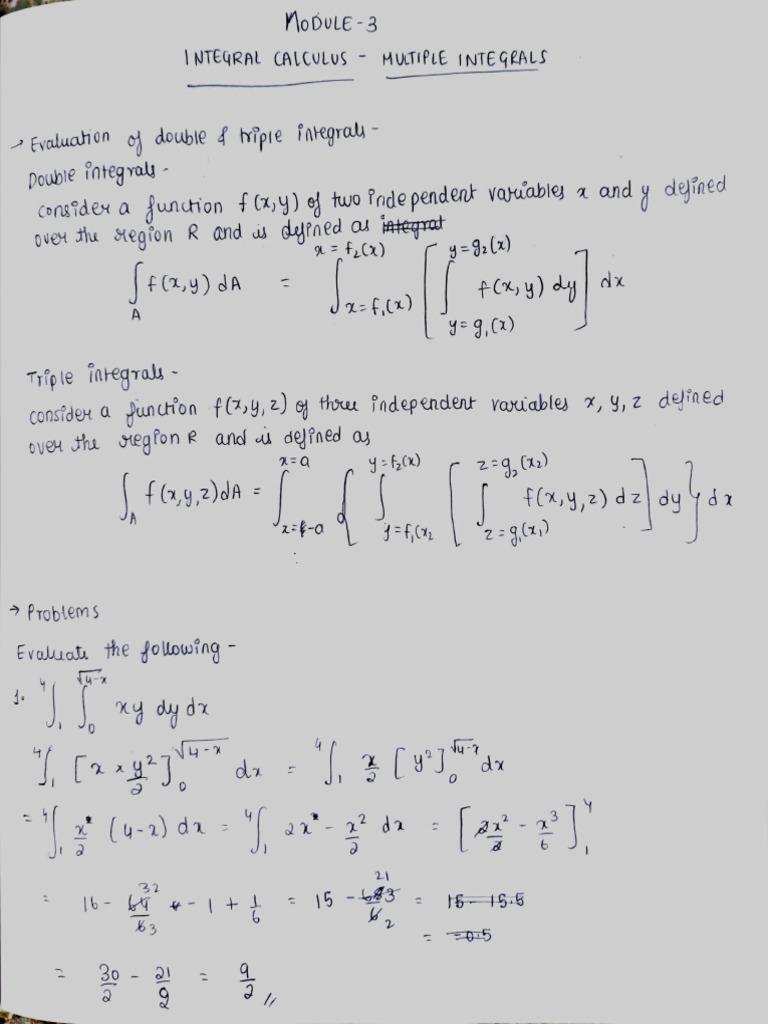 MODULE-3
INTEGRAL CALCULUS - MULTIPLE INTEGRALS
→ Evaluation of double & triple integrals -
Double integrals -
consider a function f(x,y) of two independent variables x and y defined
over the region R and is defined as integral
∫_A f(x,y) dA = ∫_{x=f₁(x)}^{x=f₂(x)} [ ∫_{y=g₁(x)}^{y=g₂(x)} f(x,y) dy ] dx
Triple integrals -
consider a function f(x,y,z) of three independent variables x, y, z defined
over the region R and is defined as
∫_A f(x,y,z)dA = ∫_{x=-a}^{x=a} { ∫_{y=f₁(x₂}^{y=f₂(x)} [ ∫_{z=g₁(x₁)}^{z=g₂(x₂)} f(x,y,z) dz ] dy } dx
→ Problems
Evaluate the following -
1. ∫_1^4 ∫_0^{√4-x} xy dy dx
∫_1^4 [x × y²/2]_0^{√4-x} dx = ∫_1^4 x/2 [y²]_0^{√4-x} dx
= ∫_1^4 x/2 (4-x) dx = ∫_1^4 2x - x²/2 dx = [2x²/2 - x³/6]_1^4
= 16 - 64/6 32/3 - 1 + 1/6 = 15 - 63/6 21/2 = 15 - 15.5
= -0.5
= 30/2 - 21/2 = 9/2 //